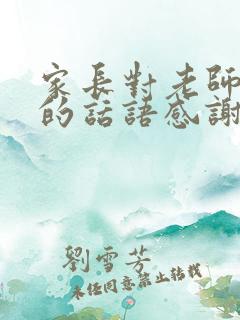 家長對老師
的話語感謝
劉雪芳
未经同意禁止转载